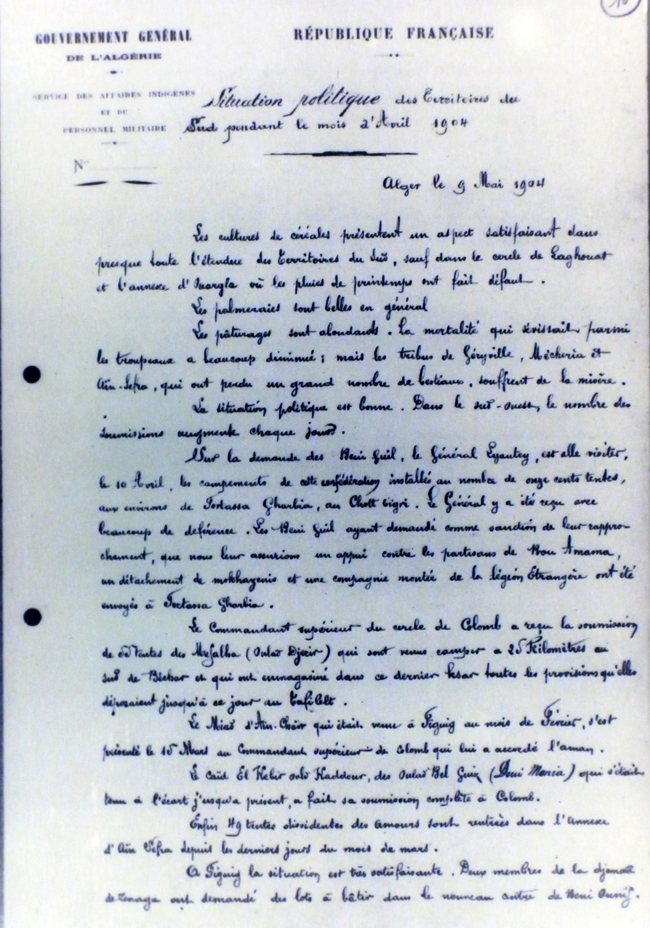 10
GOUVERNEMENT GÉNÉRAL
DE L'ALGÉRIE
SERVICE DES AFFAIRES INDIGÈNES
ET DU
PERSONNEL MILITAIRE
N°
RÉPUBLIQUE FRANÇAISE
Situation politique des Territoires du
Sud pendant le mois d'Avril 1904
Alger le 9 Mai 1904
Les cultures de céréales présentent un aspect satisfaisant dans
presque toute l'étendue des Territoires du Sud, sauf dans le cercle de Laghouat
et l'annexe d'Ouargla où les pluies de printemps ont fait défaut.
Les palmeraies sont belles en général
Les pâturages sont abondants. La mortalité qui sévissait parmi
les troupeaux a beaucoup diminué; mais les tribus de Géryville, Mécheria et
Aïn-Sefra, qui ont perdu un grand nombre de bestiaux, souffrent de la misère.
La situation politique est bonne. Dans le sud-ouest, le nombre des
soumissions augmente chaque jour.
Sur la demande des Beni Guil, le Général Lyautey, est allé visiter,
le 10 Avril, les campements de cette confédération installés au nombre de onze cents tentes,
aux environs de Fortassa Gharbia, au Chott Tigri. Le Général y a été reçu avec
beaucoup de déférence. Les Beni Guil ayant demandé comme sanction de leur rappro-
chement, que nous leur assurions un appui contre les partisans de Bou Amama,
un détachement de mokhazenis et une compagnie montée de la légion Etrangère ont été
envoyés à Fortassa Gharbia.
Le Commandant supérieur du cercle de Colomb a reçu la soumission
de tentes des (Oulad Djerir) qui sont venus camper à 25 Kilomètres au
sud de Béchar et qui ont emmagasiné dans ce dernier ksar toutes les provisions qu'elles
déposaient jusqu'à ce jour au Tafilelt.
Le Miad d'Aïn-Chaïr qui était venu à Figuig au mois de Février, s'est
présenté le 15 Mars au Commandant supérieur de Colomb qui lui a accordé l'aman.
Le Caïd El Kebir ould Kaddour, des Oulad Bel Guiz (Doui Menia) qui s'était
tenu à l'écart jusqu'à présent, a fait sa soumission complète à Colomb.
Enfin 49 tentes dissidentes des Amours sont rentrées dans l'Annexe
d'Aïn Sefra depuis les derniers jours du mois de mars.
A Figuig la situation est très satisfaisante. Deux membres de la djemaa
de Zenaga ont demandé des lots à bâtir dans le nouveau centre de Beni Ounif.